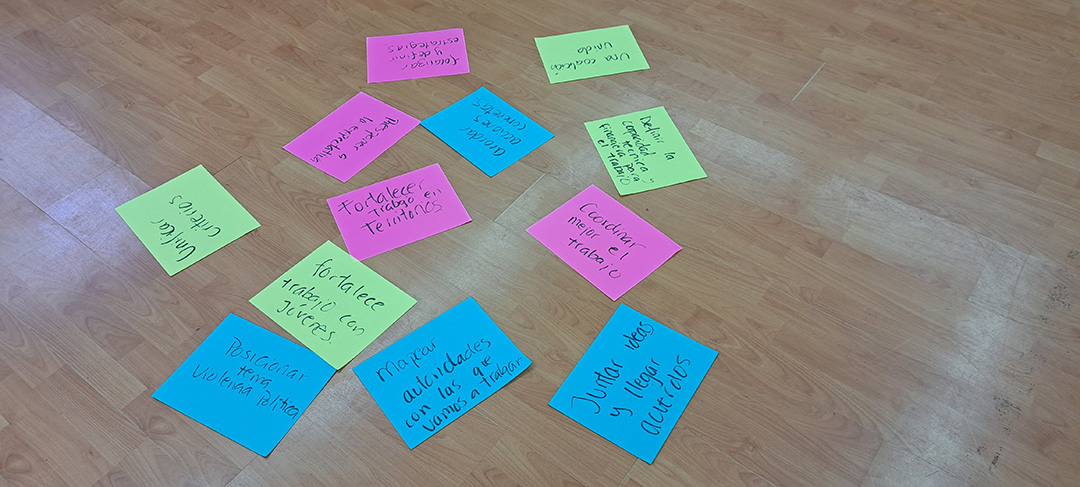 focalizar
y definir
estrategias
Una coalición
unida
Responder a
la expectativa
acordar
acciones
concretas
Definir la
capacidad
técnica y
financiera para
el trabajo
Fortalecer
trabajo en
Territorios
Unificar
criterios
Coordinar
mejor el
trabajo
fortalece
trabajo con
Jóvenes.
Posicionar
tema
Violencia Política
Mapear
autoridades
con las que
vamos a trabajar
Juntar ideas
y llegar
acuerdos